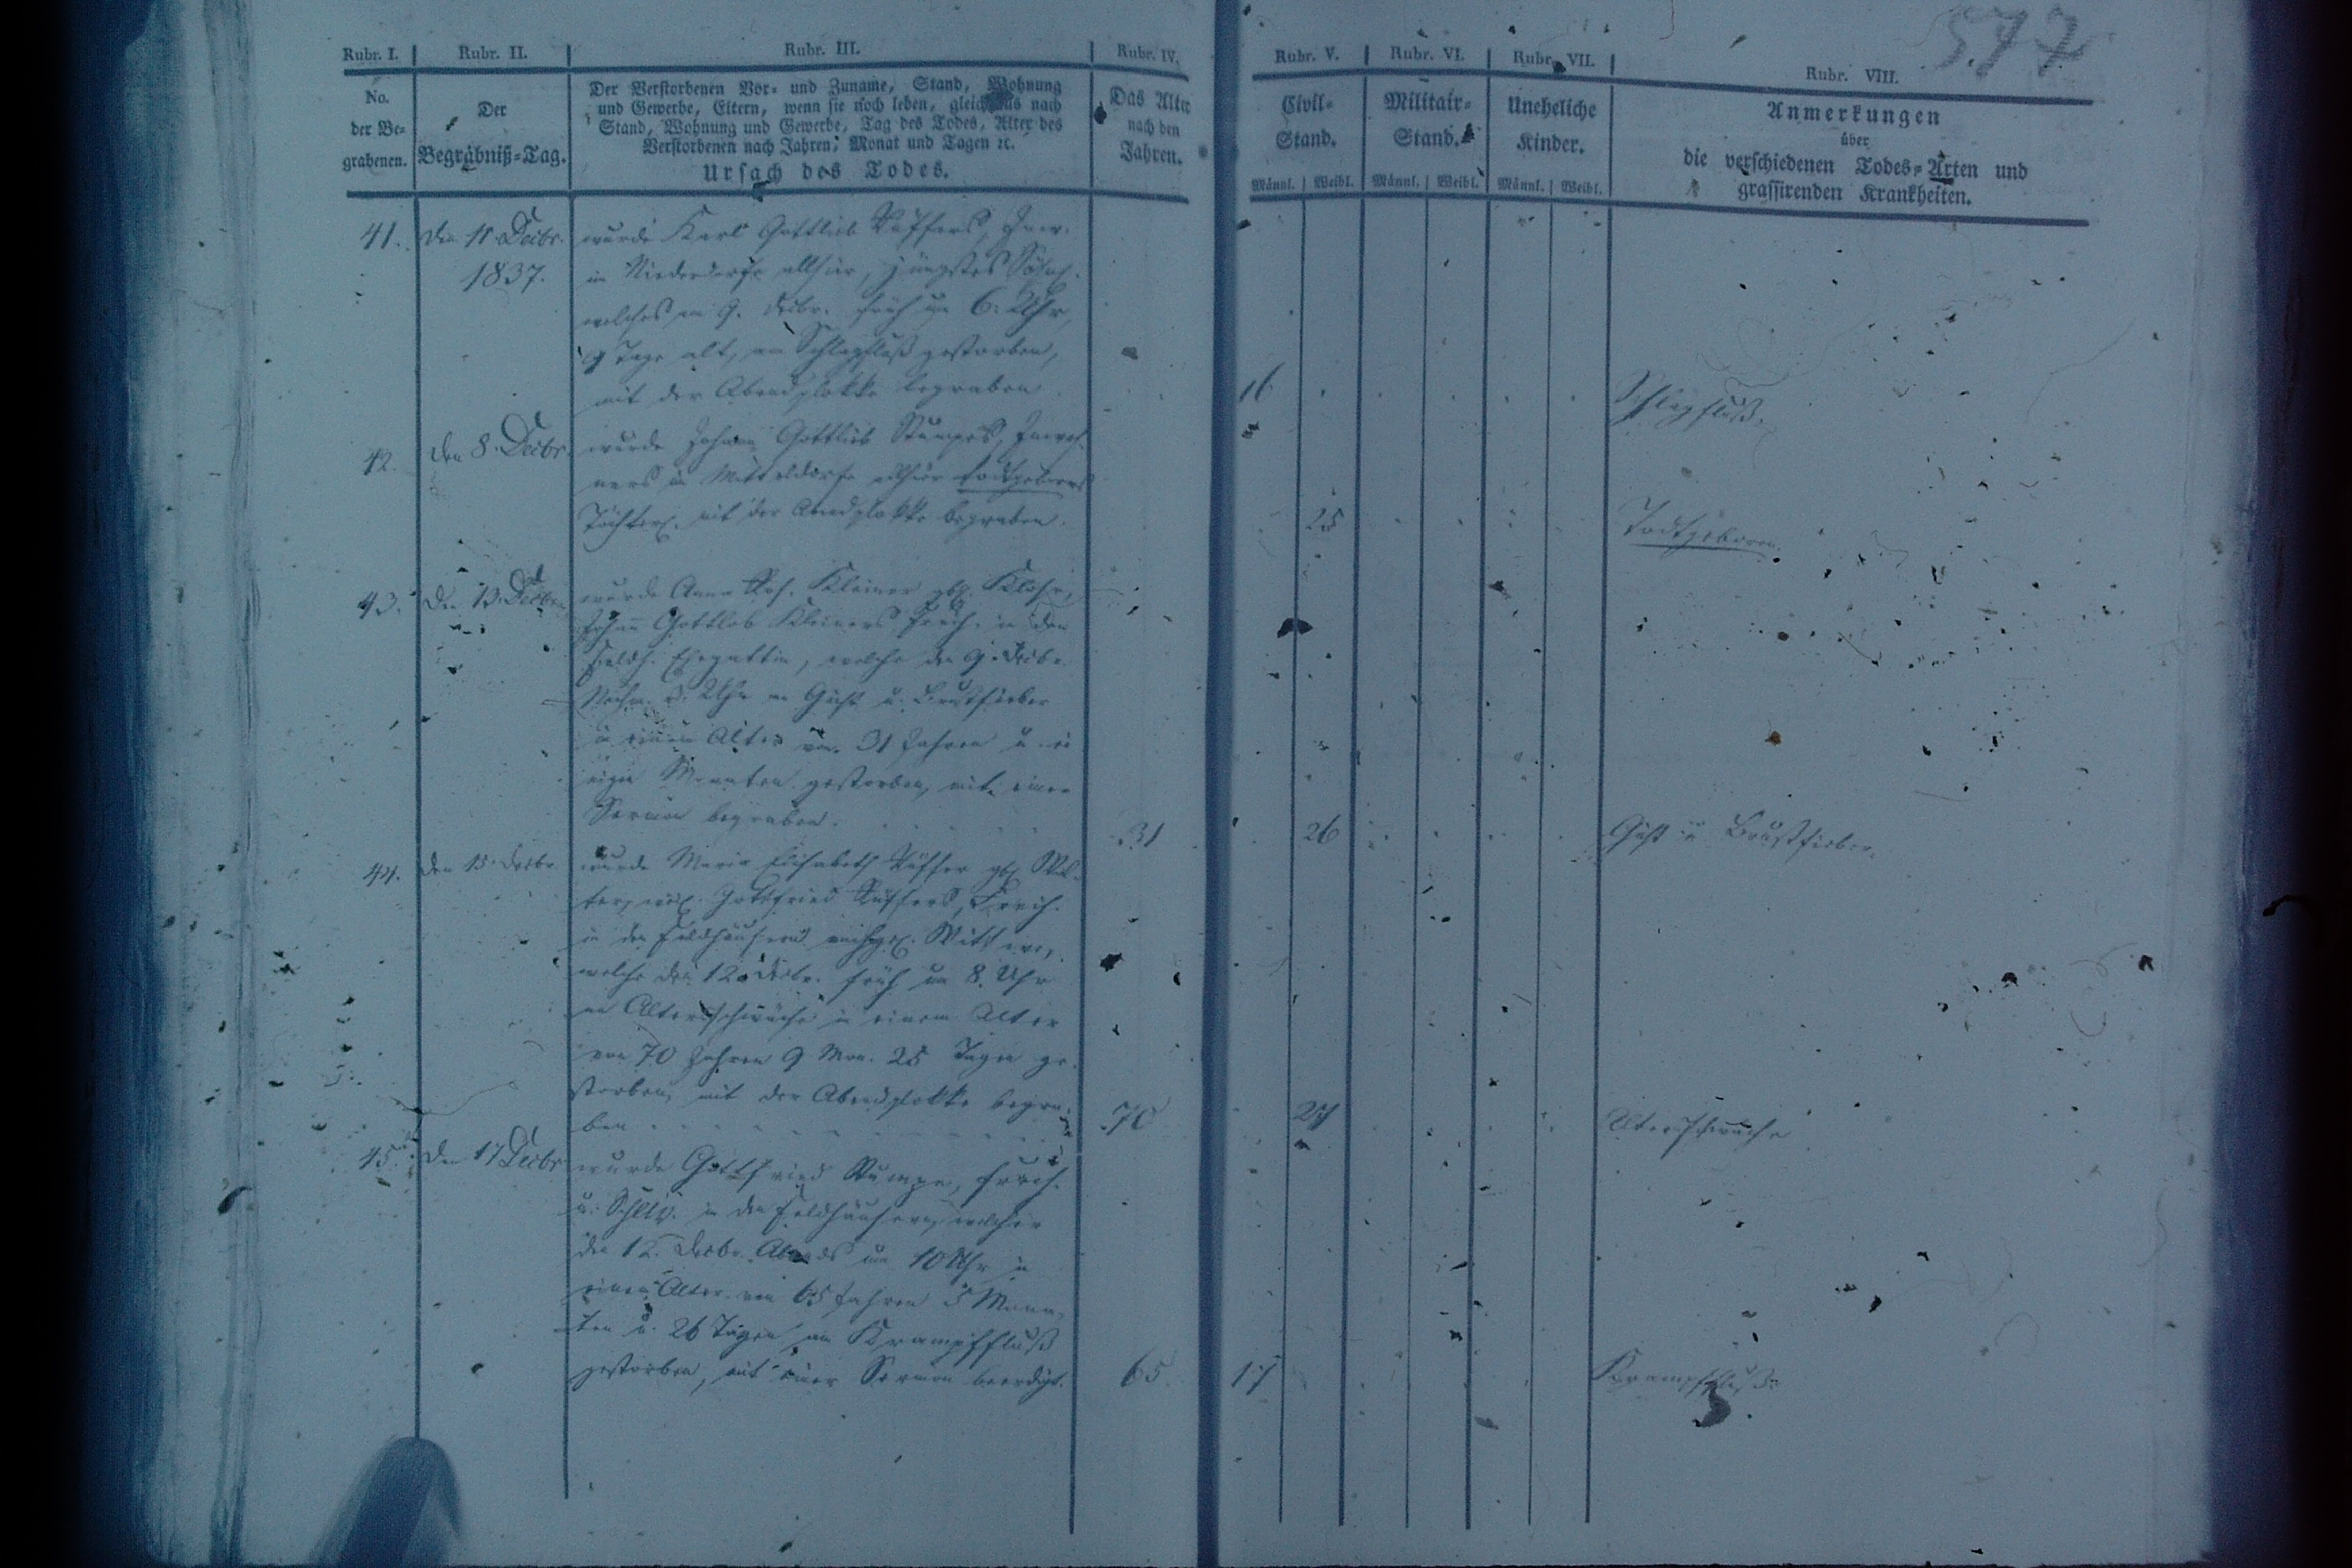 577
Rubr. I. Rubr. II. Rubr. III. Rubr. IV. Rubr. V. Rubr. VI. Rubr. VII. Rubr. VIII.
No.
der Be=
grabenen.
Der
Begräbniß=Tag.
Der Verstorbenen Vor= und Zuname, Stand, Wohnung
und Gewerbe, Eltern, wenn sie noch leben, gleichfalls nach
Stand, Wohnung und Gewerbe, Tag des Todes, Alter des
Verstorbenen nach Jahren, Monat und Tagen ꝛc.
Ursach des Todes.
Das Alter
nach den
Jahren.
Civil=
Stand.
Männl. Weibl.
Militair=
Stand.
Männl. Weibl.
Uneheliche
Kinder.
Männl. Weibl.
Anmerkungen
über
die verschiedenen Todes=Arten und
grassirenden Krankheiten.
41. den 11. Decbr. wurde Karl Gottlieb Inw.
1837. in Niederdorfe allhier, jüngstes Söhnl.
welches am 9. Decbr. früh um 6. Uhr,
9 Tage alt, am Schlagfluß gestorben,
mit der Abendglokke begraben. 16 Schlagfluß.
42. den 8. Decbr. wurde Johann Gottlieb Stumpes, Inwoh-
ners in Mitteldorfe allhier todtgebornes
Töchterl. mit der Abendglokke begraben. 25 Todtgeboren.
43. den 13. Decbr. wurde Anna Ros. Kleiner gb. Klose,
Johann Gottlob Kleiners, Freih. in den
Feldh. Ehegattin, welche den 9. Decbr.
Nachm. Uhr an Gicht u. Brustfieber
in einem Alter von 31 Jahren u. ei
nigen Monaten gestorben, mit einer
Sermon begraben. 31 26 Gicht u. Brustfieber.
44. den 15. Decbr. wurde Maria Elisabeth gb.
Gottfried Freih.
in den Feldhäusern Wittwe,
welche den 12. Decbr. früh um 8. Uhr
an Altersschwäche in einem Alter
von 70 Jahren 9 Mon. 25 Tagen ge-
storben, mit der Abendglokke begra-
ben 70 27 Altersschwäche
45. den 17 Decbr. wurde Gottfried Stumpe, Freih.
u. in den Feldhäusern, welcher
den 12. Decbr. Abends um 10 Uhr in
einem Alter von 65 Jahren 5 Mona-
ten u. 26 Tagen am Krampffluß
gestorben, mit einer Sermon beerdigt. 65 17 Krampffluß.